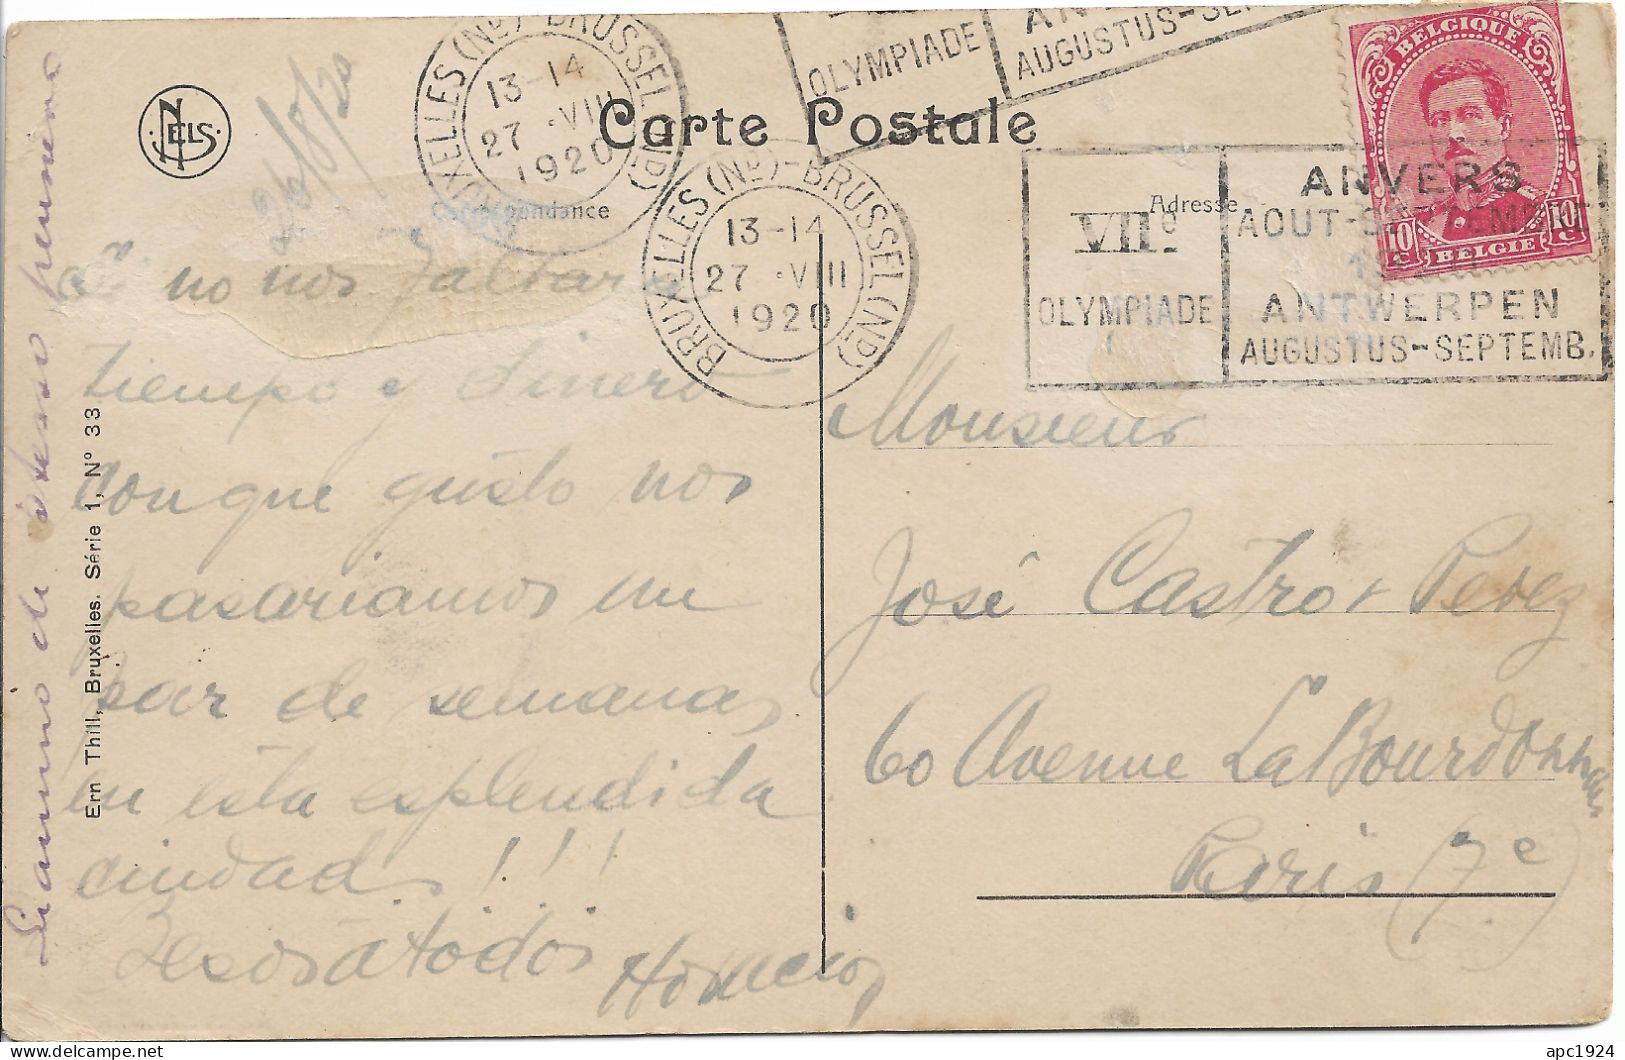 BRUXELLES (Nd) - BRUSSEL (ND)
13-14
27 · VIII
1920
OLYMPIADE
AUGUSTUS-SE
BELGIQUE
10 c
10 c
BELGIE
NELS
26/8/20
Carte Postale
Correspondance
Adresse
BRUXELLES (Nd) - BRUSSEL (ND)
13-14
27 · VIII
1920
VIIe
OLYMPIADE
ANVERS
AOUT-SEPTEMBRE
1920
ANTWERPEN
AUGUSTUS-SEPTEMB.
Si no nos faltara
tiempo y dinero
con que gusto nos
pasariamos un
par de semanas
en esta esplendida
ciudad!!!
Besos á todos
Monsieur
José Castro Perez
60 Avenue La Bourdonnais
Paris (7e)
Ern Thill, Bruxelles. Série 1, N° 33
apc1924